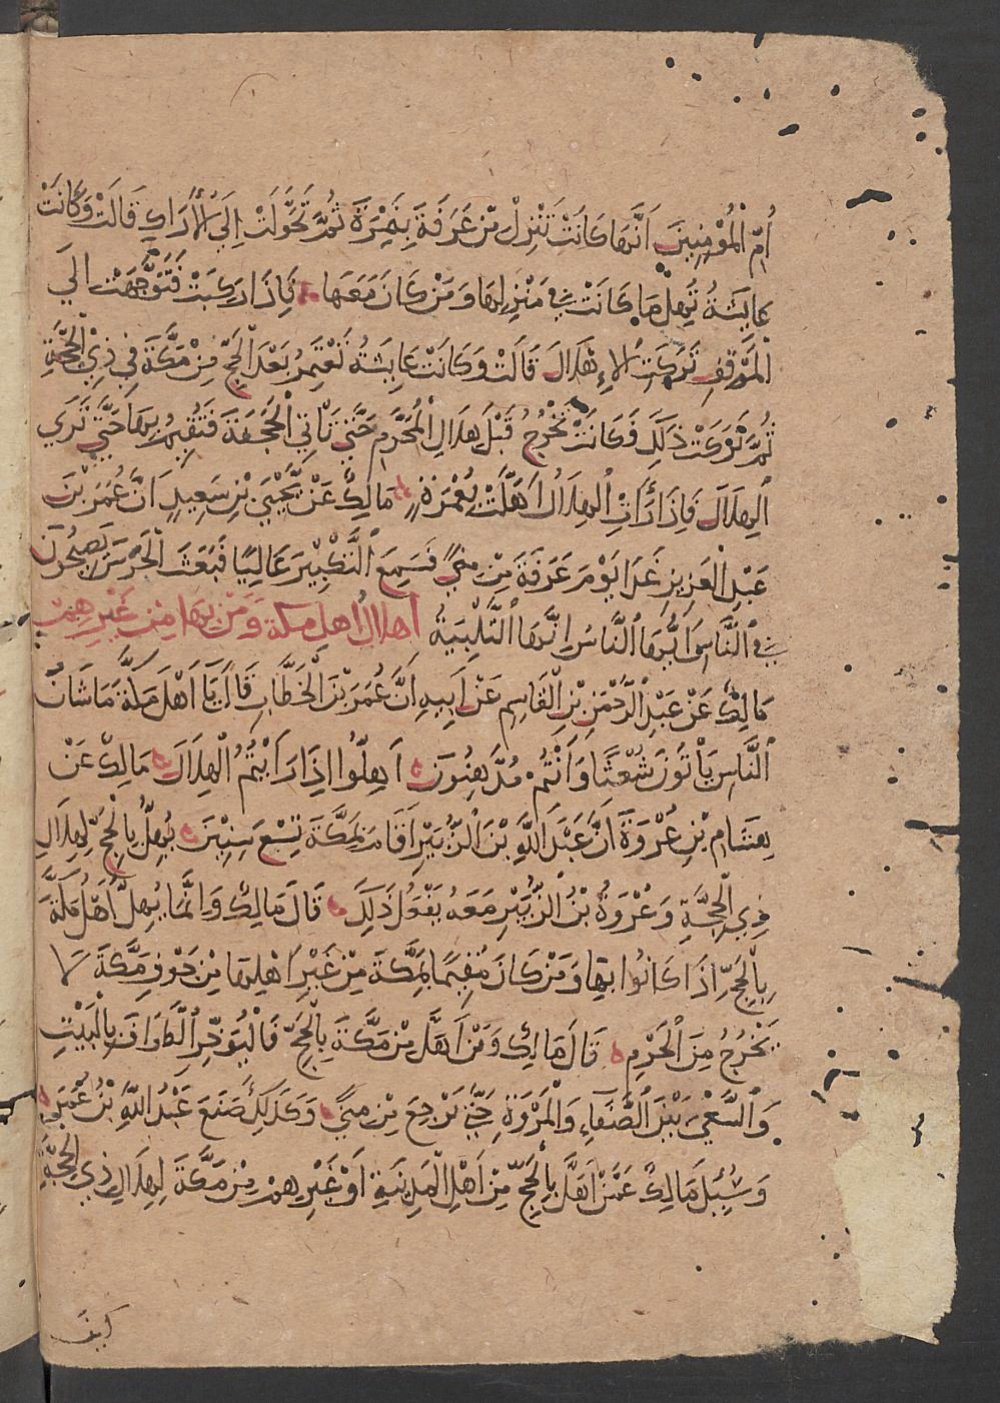 أُمِّ الْمُؤْمِنِينَ أَنَّهَا كَانَتْ تَنْزِلُ مِنْ عَرَفَةَ بِنَمِرَةَ ثُمَّ تَحَوَّلَتْ إِلَى الْأَرَاكِ قَالَتْ وَكَانَتْ
عَايِشَةُ تُهِلُّ مَا كَانَتْ فِي مَنْزِلِهَا وَمَنْ كَانَ مَعَهَا فَإِذَا رَكِبَتْ فَتَوَجَّهَتْ إِلَى
الْمَوْقِفِ تَرَكَتِ الْإِهْلَالَ قَالَتْ وَكَانَتْ عَايِشَةُ تَعْتَمِرُ بَعْدَ الْحَجِّ مِنْ مَكَّةَ فِي ذِي الْحِجَّةِ
ثُمَّ تَرَكَتْ ذَلِكَ فَكَانَتْ تَخْرُجُ قَبْلَ هِلَالِ الْمُحَرَّمِ حَتَّى تَأْتِيَ الْجُحْفَةَ فَتُقِيمُ بِهَا حَتَّى تَرَى
الْهِلَالَ فَإِذَا رَأَتِ الْهِلَالَ أَهَلَّتْ بِعُمْرَةٍ مَالِكٌ عَنْ يَحْيَى بْنِ سَعِيدٍ أَنَّ عُمَرَ بْنَ
عَبْدِ الْعَزِيزِ غَدَا يَوْمَ عَرَفَةَ مِنْ مِنًى فَسَمِعَ التَّكْبِيرَ عَالِيًا فَبَعَثَ الْحَرَسَ يَصِيحُونَ
فِي النَّاسِ أَيُّهَا النَّاسُ إِنَّهَا التَّلْبِيَةُ إهلال أهل مكة وَمَنْ بِهَا مِنْ غَيْرِهِمْ
مَالِكٌ عَنْ عَبْدِ الرَّحْمَنِ بْنِ الْقَاسِمِ عَنْ أَبِيهِ أَنَّ عُمَرَ بْنَ الْخَطَّابِ قَالَ يَا أَهْلَ مَكَّةَ مَا شَأْنُ
النَّاسِ يَأْتُونَ شُعْثًا وَأَنْتُمْ مُدَّهِنُونَ أَهِلُّوا إِذَا رَأَيْتُمُ الْهِلَالَ مَالِكٌ عَنْ
هِشَامِ بْنِ عُرْوَةَ أَنَّ عَبْدَ اللَّهِ بْنَ الزُّبَيْرِ أَقَامَ بِمَكَّةَ تِسْعَ سِنِينَ يُهِلُّ بِالْحَجِّ لِهِلَالِ
ذِي الْحِجَّةِ وَعُرْوَةُ بْنُ الزُّبَيْرِ مَعَهُ يَفْعَلُ ذَلِكَ قَالَ مَالِكٌ وَإِنَّمَا يُهِلُّ أَهْلُ مَكَّةَ
بِالْحَجِّ إِذَا كَانُوا بِهَا وَمَنْ كَانَ مُقِيمًا بِمَكَّةَ مِنْ غَيْرِ أَهْلِهَا مِنْ جَوْفِ مَكَّةَ لَا
يَخْرُجُ مِنَ الْحَرَمِ قَالَ مَالِكٌ وَمَنْ أَهَلَّ مِنْ مَكَّةَ بِالْحَجِّ فَالْيُؤَخِّرِ الطَّوَافَ بِالْبَيْتِ
وَالسَّعْيَ بَيْنَ الصَّفَاءِ وَالْمَرْوَةِ حَتَّى يَرْجِعَ مِنْ مِنًى وَكَذَلِكَ صَنَعَ عَبْدُ اللَّهِ بْنُ عُمَرَ
وَسُئِلَ مَالِكٌ عَمَّنْ أَهَلَّ بِالْحَجِّ مِنْ أَهْلِ الْمَدِينَةِ أَوْ غَيْرِهِمْ مِنْ مَكَّةَ لِهِلَالِ ذِي الْحِجَّةِ
كيف